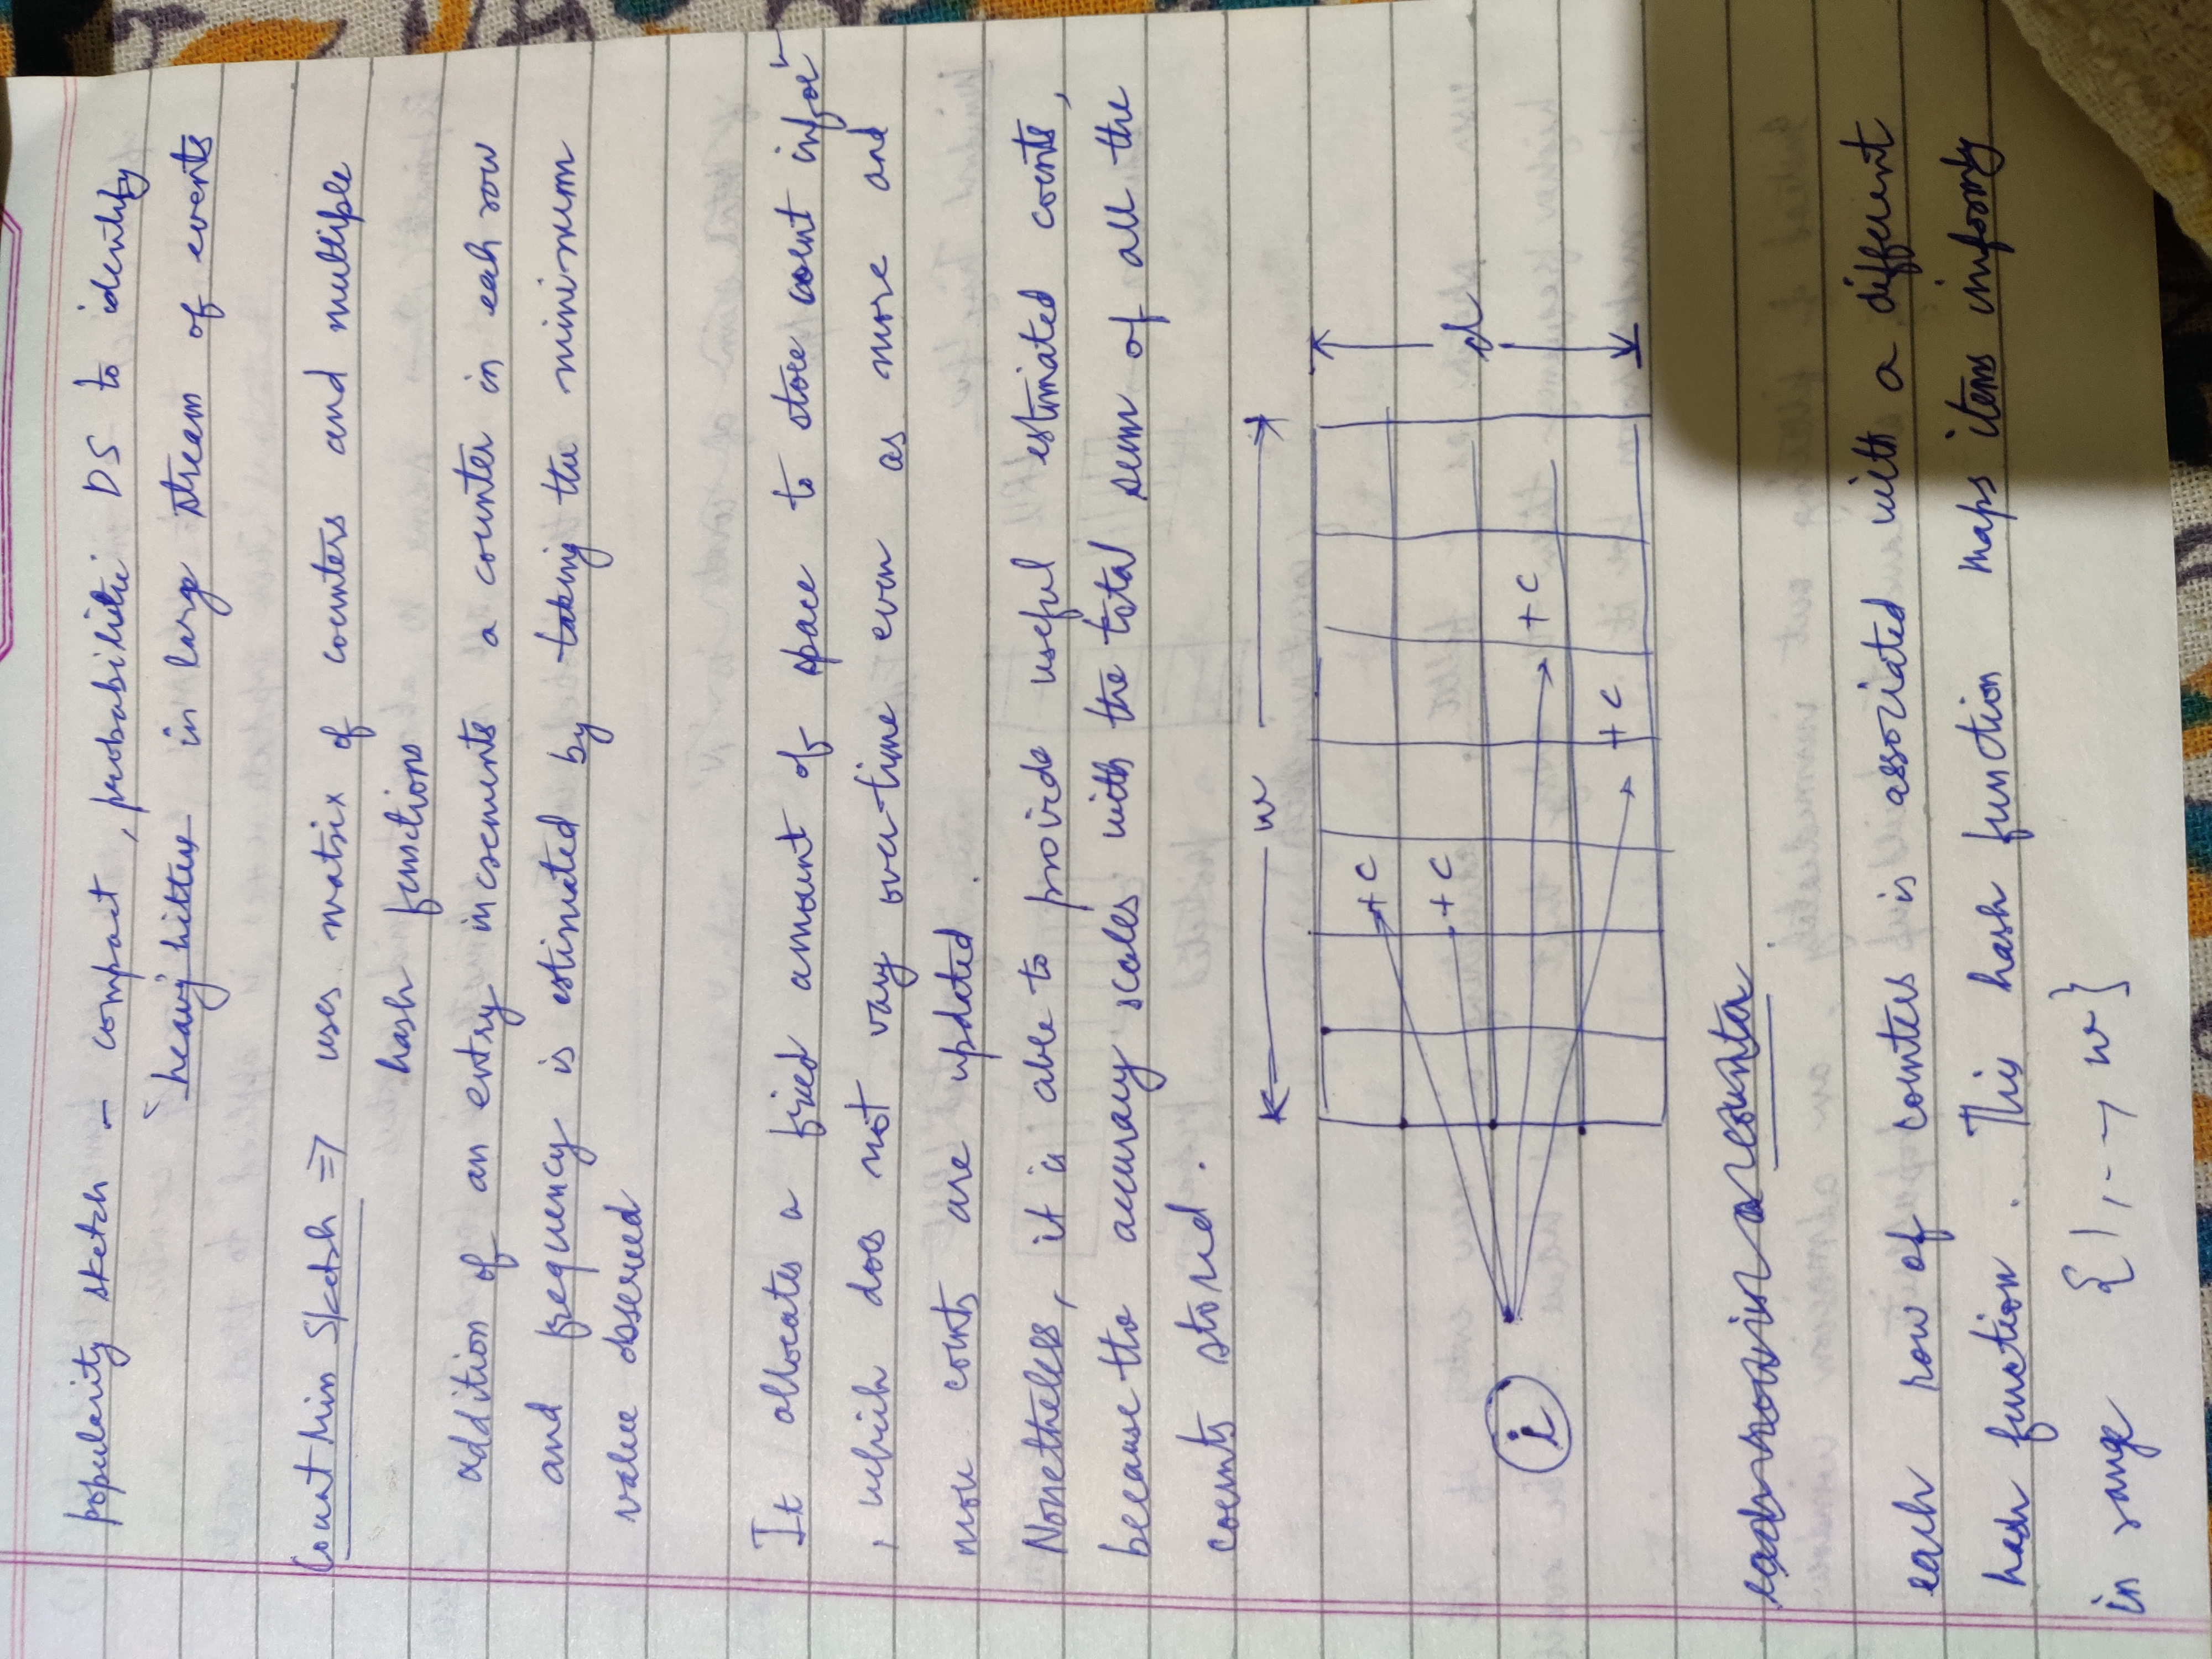 popularity sketch - compact, probabilistic DS to identify
"heavy hitters in large stream of events
Count Min Sketch => uses matrix of counters and multiple
hash functions
addition of an entry increments a counter in each row
and frequency is estimated by taking the minimum
value observed
It allocates a fixed amount of space to store count infor
, which does not vary over-time even as more and
more counts are updated.
Nonetheless, it is able to provide useful estimated counts,
because the accuracy scales with the total sum of all the
counts stored.
w
+c
+c
+c
+c
d
i
each row is a counter
each row of counters is associated with a different
hash function. This hash function maps items uniformly
in range {1, -- , w}